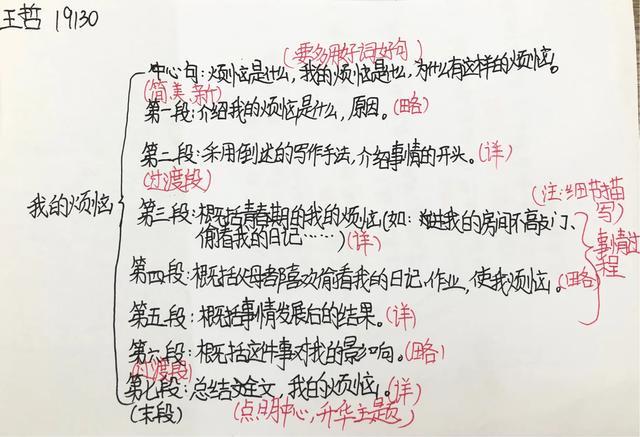 王哲 19130
(要多用好词好句)
中心句:烦恼是什么,我的烦恼是什么,为什么有这样的烦恼。
(简、美、新)
第一段:介绍我的烦恼是什么,原因。(略)
第二段:采用倒述的写作手法,介绍事情的开头。(详)
(过渡段)
(注:细节描写)
我的烦恼
第三段:概括青春期的我的烦恼(如:进我的房间不敲门、
偷看我的日记……)(详)
事情过程
第四段:概括父母都喜欢偷看我的日记、作业,使我烦恼。(略)
第五段:概括事情发展后的结果。(详)
第六段:概括这件事对我的影响。(略)
(过渡段)
第七段:总结全文,我的烦恼。(详)
(末段)
(点明中心,升华主题)